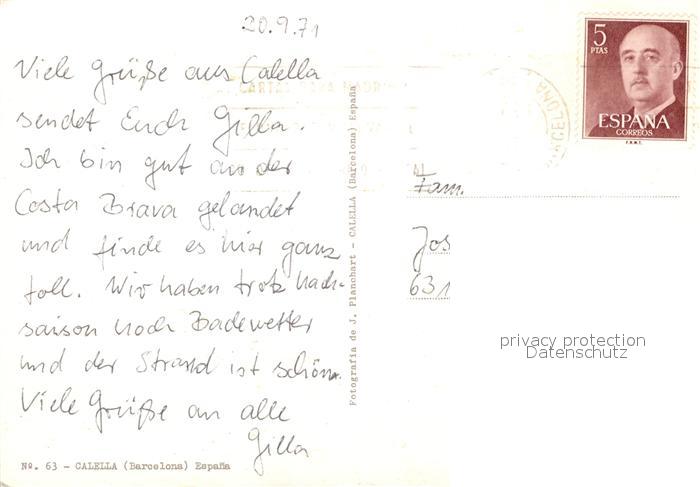 20.9.71
Viele Grüße aus Calella
sendet Euch Gilla.
Ich bin gut an der
Costa Brava gelandet
und finde es hier ganz
toll. Wir haben trotz Nach-
saison noch Badewetter
und der Strand ist schön.
Viele Grüße an alle
Gilla
Nº. 63 - CALELLA (Barcelona) España
Fotografía de J. Planchart - CALELLA (Barcelona) España
5
PTAS
ESPAÑA
CORREOS
F.N.M.T.
BARCELONA
Fam.
Jos
631
privacy protection
Datenschutz